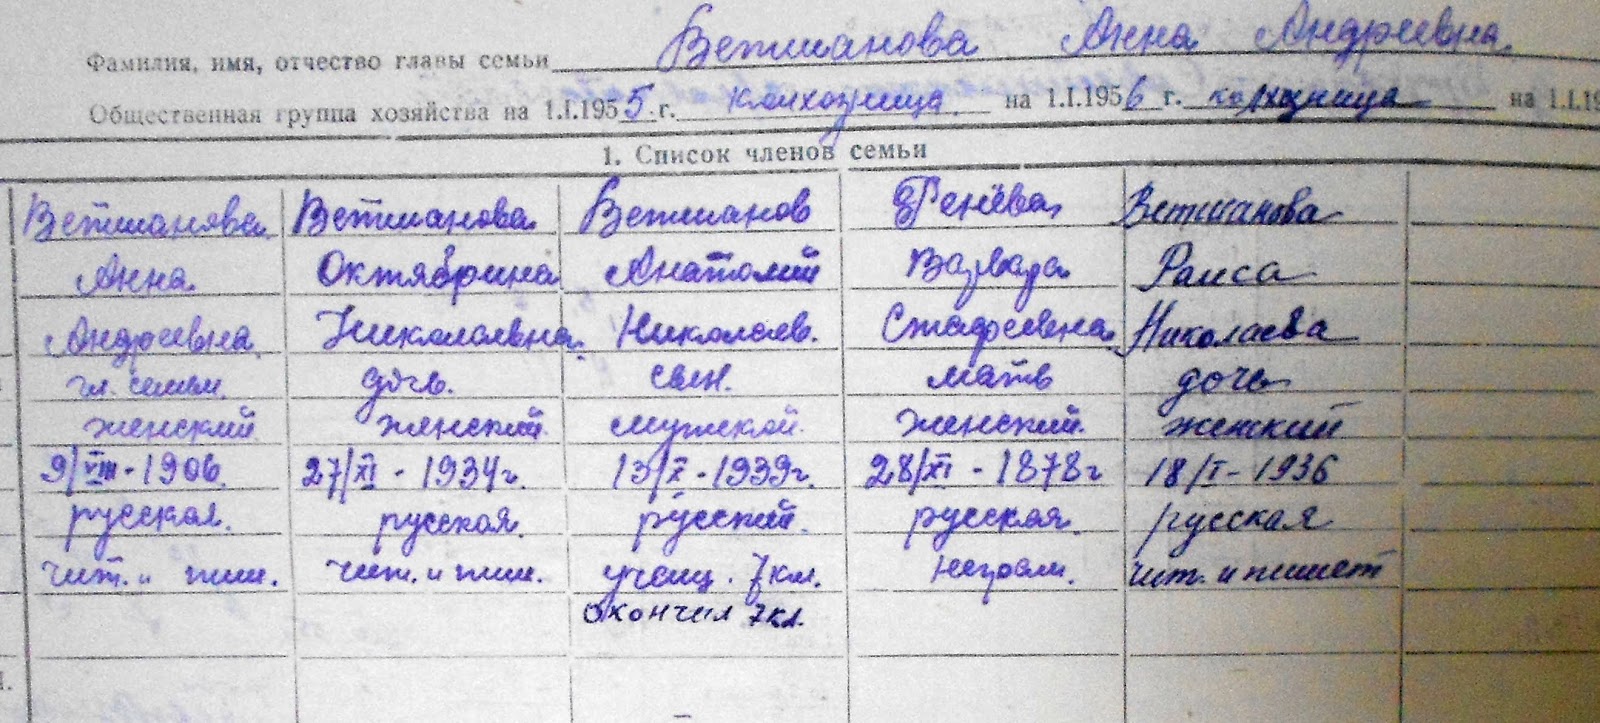 Фамилия, имя, отчество главы семьи Ветшанова Анна Андреевна
Общественная группа хозяйства на 1.I.1955 г. колхозница на 1.I.1956 г. колхозница на 1.I.19
1. Список членов семьи
Ветшанова Ветшанова Ветшанов Ветшанова
Анна Октябрина Анатолий Варвара Раиса
Андреевна Николаевна Николаев. Николаева
гл. семьи дочь. сын. мать дочь
женский женский. мужской. женский. женский
9/VIII-1906. 27/XI-1934г. 13/X-1939г. 28/XI-1878г 18/I-1936
русская. русская. русский. русская. русская
чит. и пиш. чит. и пиш. учащ. 7 кл. неграм. чит. и пишет
окончил 7кл.